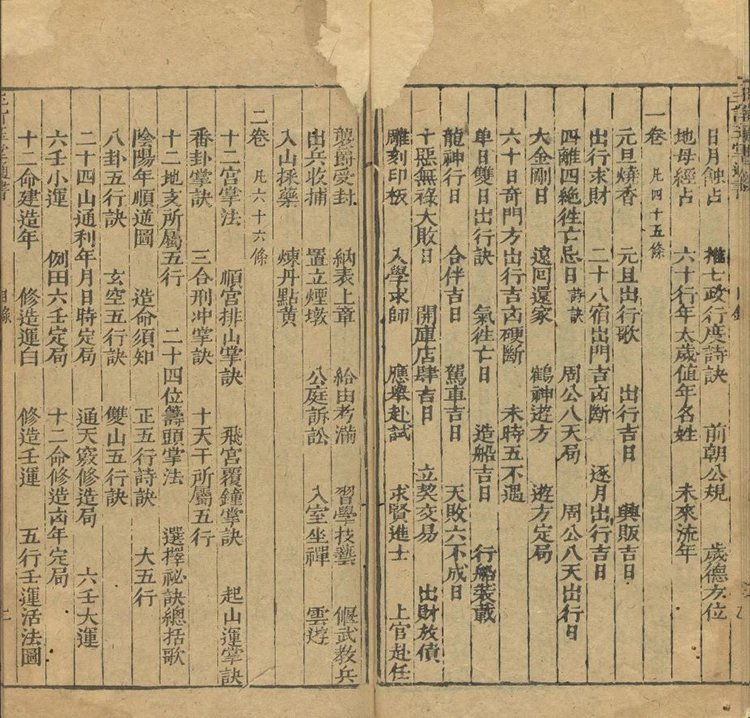 日月蝕占 推七政行度詩訣 前朝公規 歲德方位
地母經占 六十行年太歲値年名姓 未來流年
一卷 凡四十五條
元旦燒香 元旦出行歌 出行吉日 興販吉日
出行求財 二十八宿出門吉凶斷 逐月出行吉日
四離四絕徃亡忌日 詩訣 周公八天局 周公八天出行日
大金剛日 遠囘還家 鶴神遊方 遊方定局
六十日奇門方出行吉凶硬斷 未時五不遇
单日雙日出行訣 氣徃亡日 造船吉日 行船裝載
龍神行日 合伴吉日 駕車吉日 天敗六不成日
十惡無祿大敗日 開庫店肆吉日 立契交易 出財放債
雕刻印板 入學求師 應舉赴試 求賢進士 上官赴任
襲爵受封 納表上章 給由考滿 習學技藝 偃武敎兵
出兵收捕 置立煙墩 公庭訴訟 入室坐禪 雲遊
入山採藥 煉丹點黄
二卷 凡六十六條
十二宫掌法 順宫排山掌訣 飛宫覆鐘掌訣 起山運掌訣
番卦掌訣 三合刑冲掌訣 十天干所屬五行
十二地支所屬五行 二十四位籌頭掌法 選擇祕訣總括歌
陰陽年順逆圖 造命須知 正五行詩訣 大五行
八卦五行訣 玄空五行訣 雙山五行訣
二十四山通利年月日時定局 通天竅修造局 六壬大運
六壬小運 例田六壬定局 十二命修造凶年定局
十二命建造年 修造運白 修造壬運 五行壬運活法圖
目錄
二